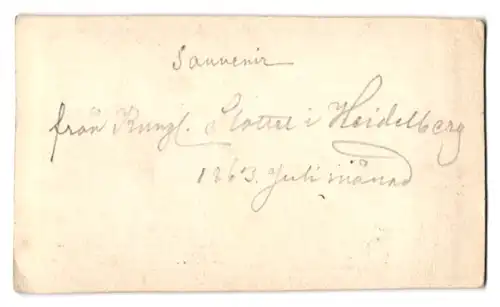 Souvenir
från Kungl. Slottet i Heidelberg
1863. Juli månad